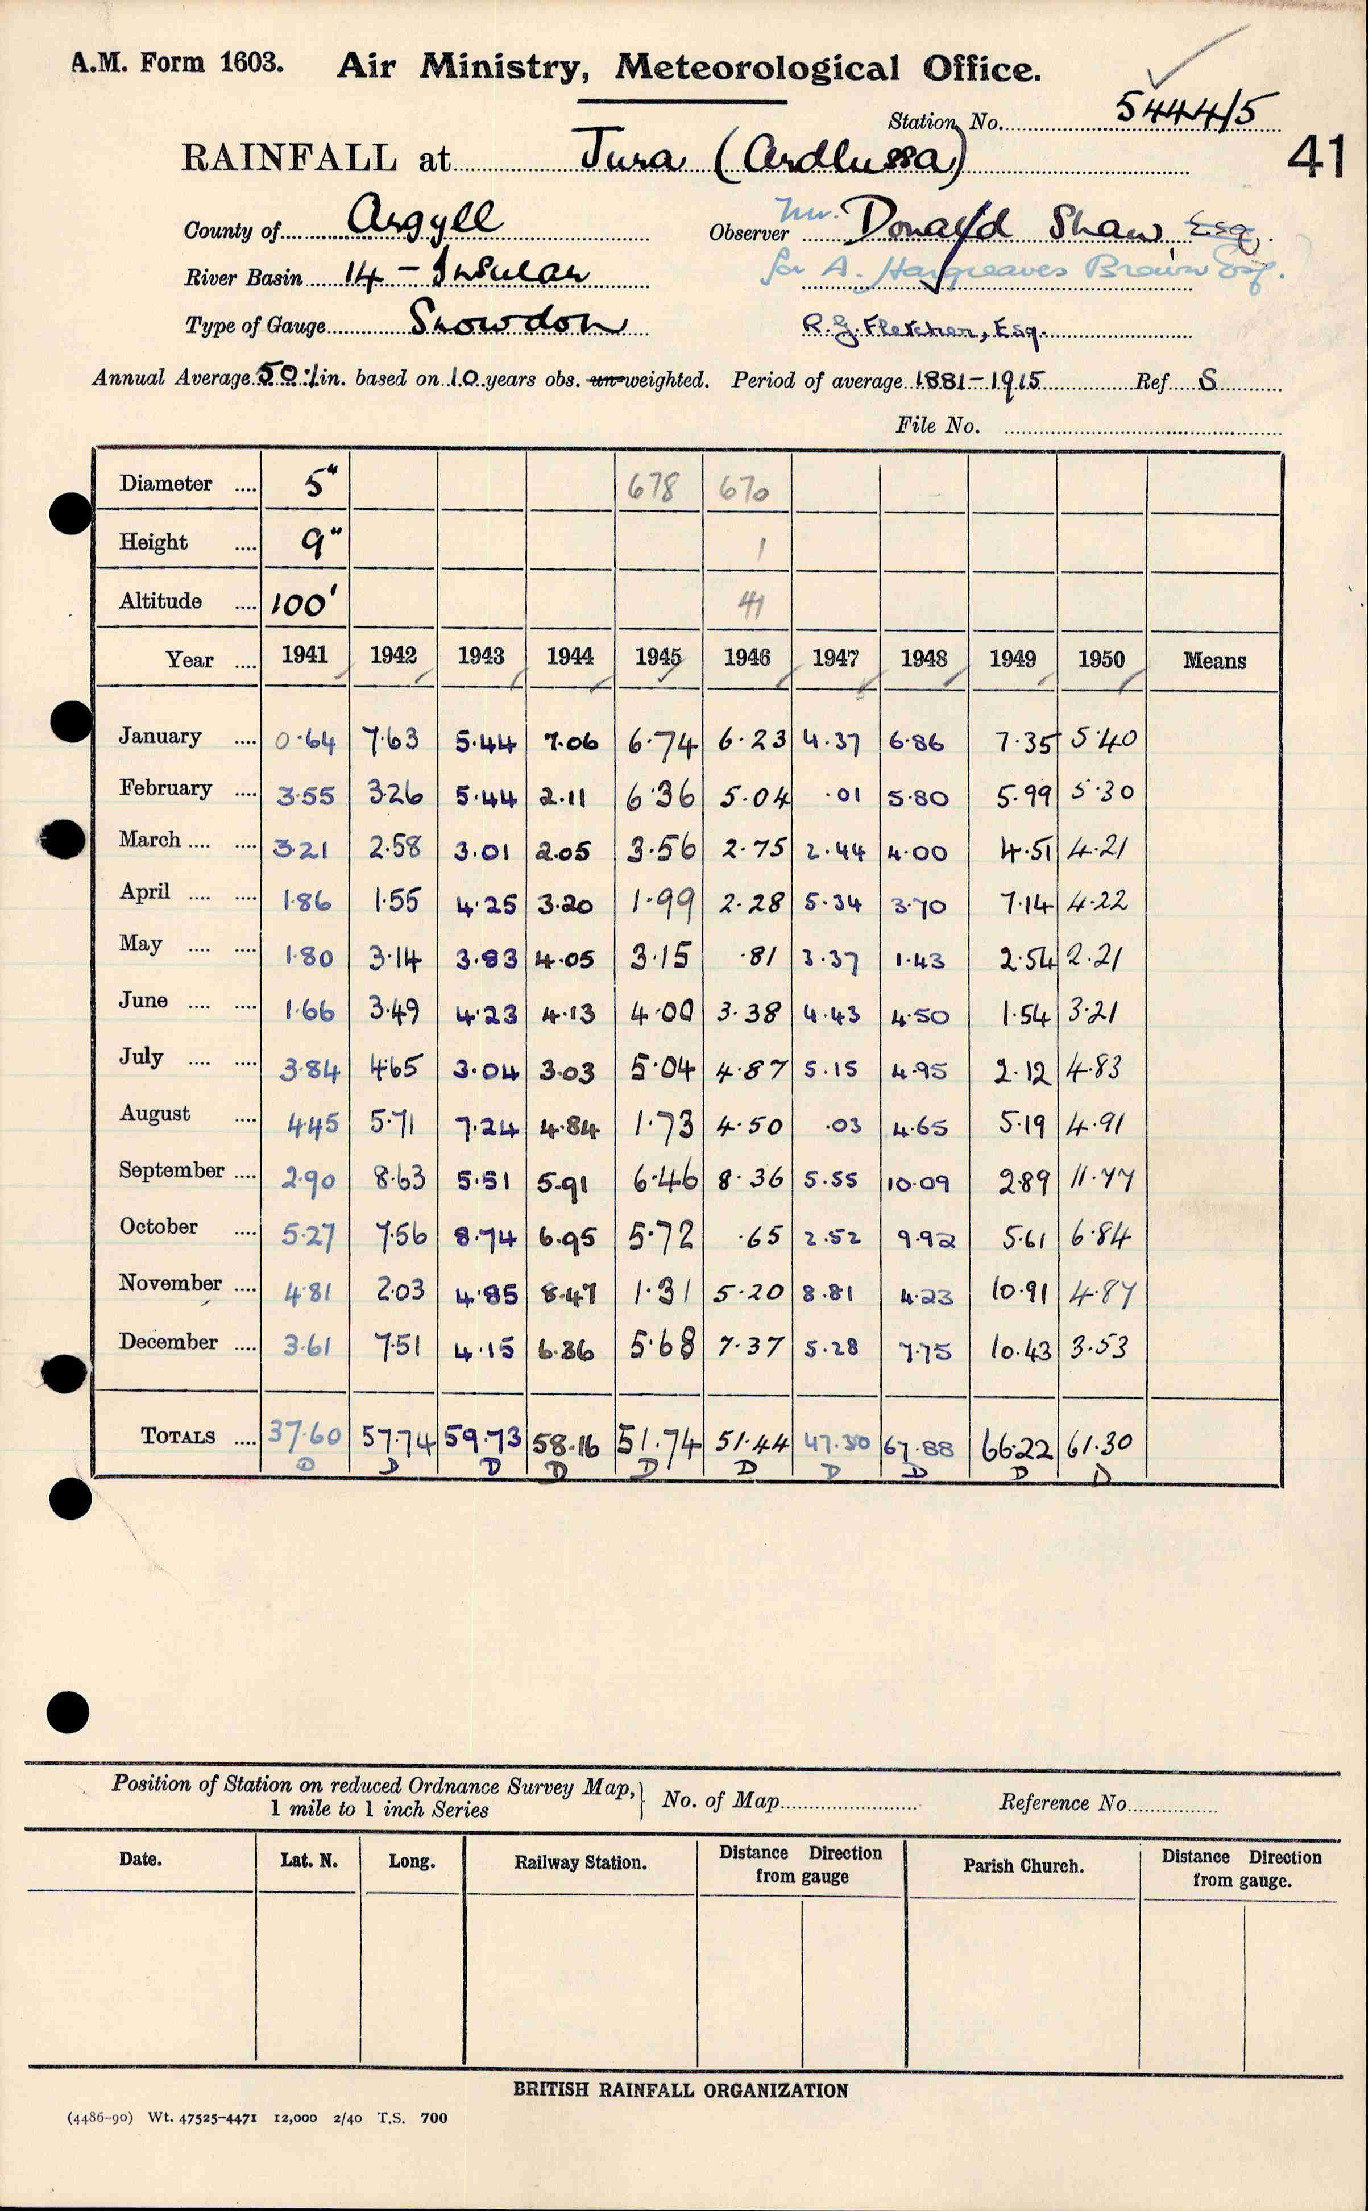 A.M. Form 1603. Air Ministry, Meteorological Office.
Station No. 5444/5
RAINFALL at Jura (Ardlussa) 41
County of Argyll Observer Mr. Donald Shaw, Esq.
River Basin 14 - Insular for A. Hargreaves Brown Esq.
Type of Gauge Snowdon R.G. Fletcher, Esq.
Annual Average 50.1 in. based on 10 years obs. un-weighted. Period of average 1881-1915 Ref S
File No.
Diameter .... 5" 678 670
Height .... 9" 1
Altitude .... 100' 41
Year .... 1941 1942 1943 1944 1945 1946 1947 1948 1949 1950 Means
January .... 0.64 7.63 5.44 7.06 6.74 6.23 4.37 6.86 7.35 5.40
February .... 3.55 3.26 5.44 2.11 6.36 5.04 .01 5.80 5.99 5.30
March .... .... 3.21 2.58 3.01 2.05 3.56 2.75 2.44 4.00 4.51 4.21
April .... .... 1.86 1.55 4.25 3.20 1.99 2.28 5.34 3.70 7.14 4.22
May .... .... 1.80 3.14 3.83 4.05 3.15 .81 3.37 1.43 2.54 2.21
June .... .... 1.66 3.49 4.23 4.13 4.00 3.38 4.43 4.50 1.54 3.21
July .... .... 3.84 4.65 3.04 3.03 5.04 4.87 5.15 4.95 2.12 4.83
August .... 4.45 5.71 7.24 4.84 1.73 4.50 .03 4.65 5.19 4.91
September .... 2.90 8.63 5.51 5.91 6.46 8.36 5.55 10.09 2.89 11.77
October .... 5.27 7.56 8.74 6.95 5.72 .65 2.52 9.92 5.61 6.84
November .... 4.81 2.03 4.85 8.47 1.31 5.20 8.81 4.23 10.91 4.87
December .... 3.61 7.51 4.15 6.36 5.68 7.37 5.28 7.75 10.43 3.53
TOTALS .... 37.60 57.74 59.73 58.16 51.74 51.44 47.30 67.88 66.22 61.30
D D D D D D D D D D
Position of Station on reduced Ordnance Survey Map, 1 mile to 1 inch Series } No. of Map Reference No.
Date. Lat. N. Long. Railway Station. Distance Direction from gauge Parish Church. Distance Direction from gauge.
BRITISH RAINFALL ORGANIZATION
(4486-90) Wt. 47525-4471 12,000 2/40 T.S. 700